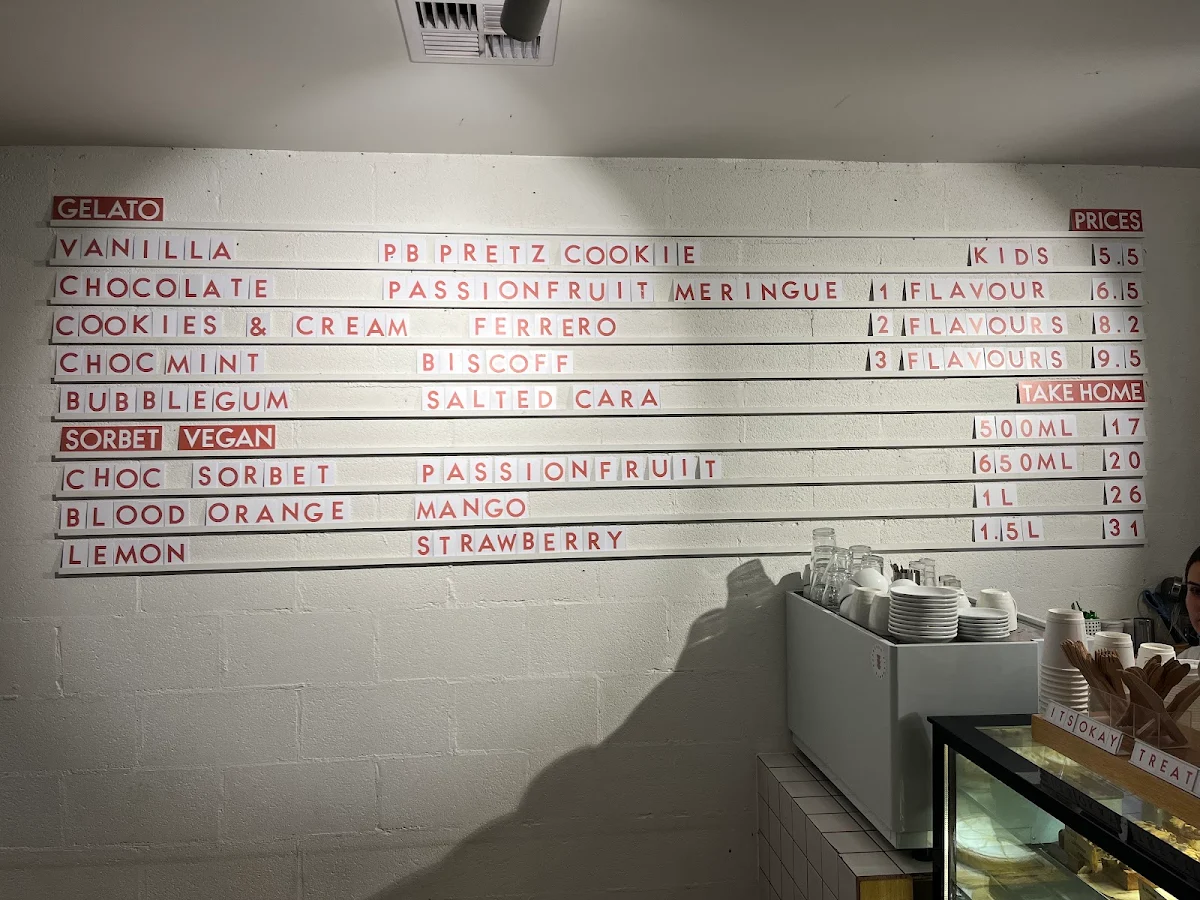 GELATO PRICES
VANILLA PB PRETZ COOKIE KIDS 5.5
CHOCOLATE PASSIONFRUIT MERINGUE 1 FLAVOUR 6.5
COOKIES & CREAM FERRERO 2 FLAVOURS 8.2
CHOC MINT BISCOFF 3 FLAVOURS 9.5
BUBBLEGUM SALTED CARA TAKE HOME
SORBET VEGAN 500ML 17
CHOC SORBET PASSIONFRUIT 650ML 20
BLOOD ORANGE MANGO 1L 26
LEMON STRAWBERRY 1.5L 31
ITS OKAY TREAT